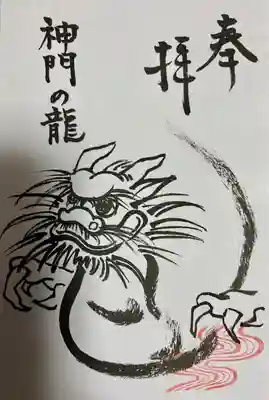 奉拝
神門の龍